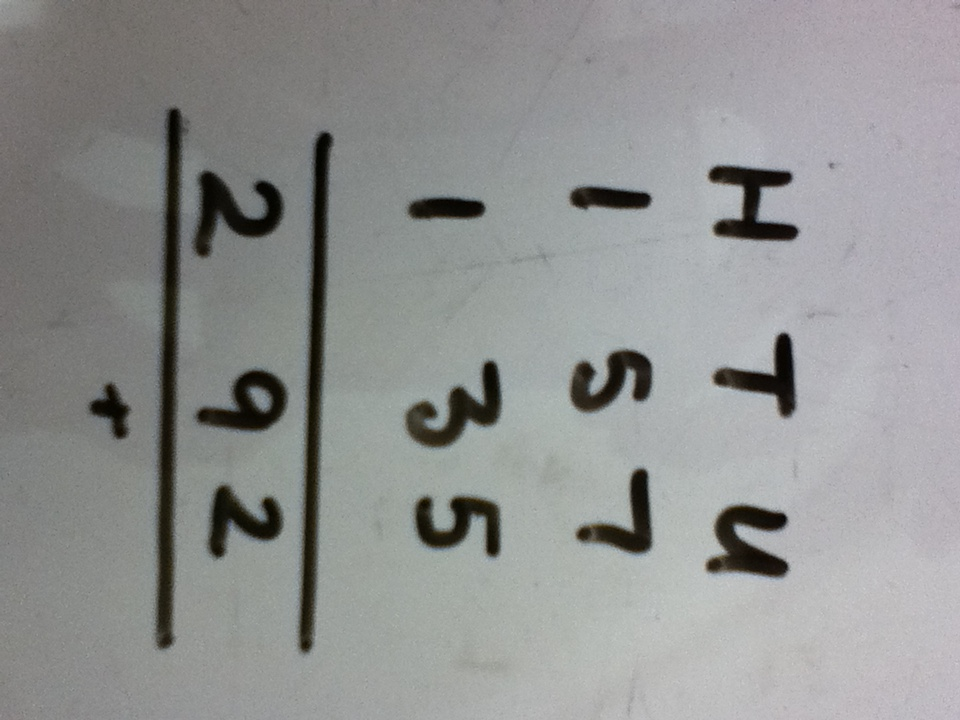 H T U
1 5 7
1 3 5
2 9 2
+